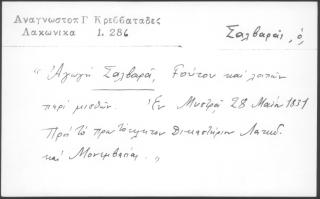 Αναγνωστοπ Γ Κρεββαταδες
Λακωνικα 1. 286
Σαλβαρᾶς, ὁ,
"Ἀγωγὴ Σαλβαρᾶ, Γούτου καὶ λοιπῶν
περὶ μισθῶν. Ἐν Μυστρᾷ 28 Μαΐου 1837
Πρὸς τὸ πρωτόκλητον Δικαστήριον Λακεδ.
καὶ Μονεμβασίας."